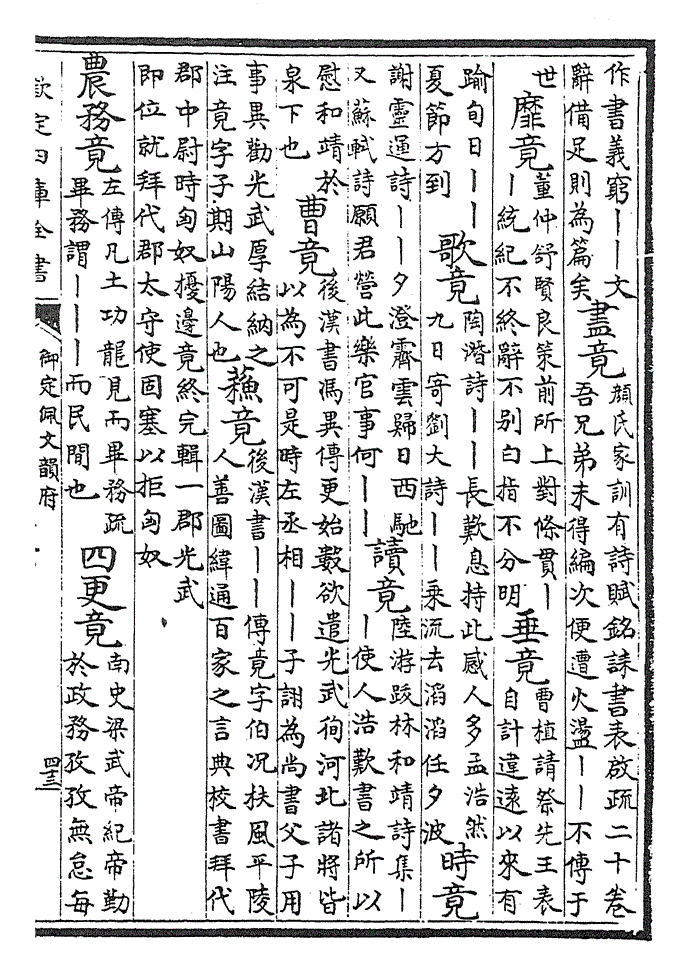 作書義窮丨丨文
辭備足則為篇矣
盡竟
顔氏家訓有詩賦銘誄書表啟疏二十卷
吾兄弟未得編次便遭火盪丨丨不傳于
世
靡竟
董仲舒賢良策前所上對條貫丨
丨統紀不終辭不別白指不分明
垂竟
曹植請祭先王表
自計違遠以來有
踰旬日丨丨
夏節方到
歌竟
陶潛詩丨丨長歎息持此感人多孟浩然
九日寄劉大詩丨丨乘流去滔滔任夕波
時竟
謝靈運詩丨丨夕澄霽雲歸日西馳
又蘇軾詩願君營此樂官事何丨丨
讀竟
陸游跋林和靖詩集丨
丨使人浩歎書之所以
慰和靖於
泉下也
曹竟
後漢書馮異傳更始數欲遣光武徇河北諸將皆
以為不可是時左丞相丨丨子詡為尚書父子用
事異勸光武厚結納之
注竟字子期山陽人也
蘓竟
後漢書丨丨傳竟字伯况扶風平陵
人善圖緯通百家之言典校書拜代
郡中尉時匈奴擾邊竟終完輯一郡光武
即位就拜代郡太守使固塞以拒匈奴
農務竟
左傳凡土功龍見而畢務疏
畢務謂丨丨丨而民閒也
四更竟
南史梁武帝紀帝勤
於政務孜孜無怠每
欽定四庫全書
御定佩文韻府